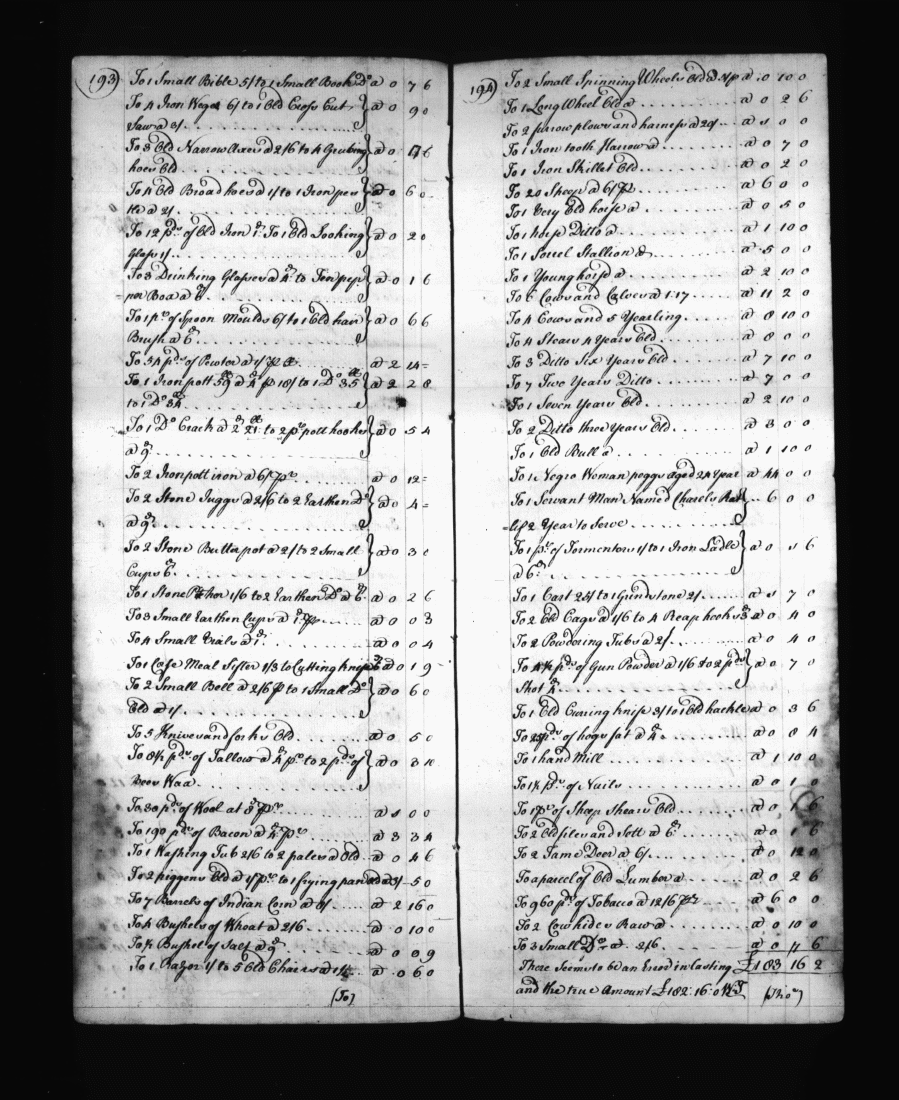 193
To 1 Small Bible 5/ to 1 Small Book Do a 0 7 6
To 4 Iron Weges 6/ to 1 Old Cross Cut } a 0 9 0
Saw a 3/
To 3 Old Narrow Axes a 2/6 to 4 Grubing } a 0 17 6
hoes Old
To 4 Old Broad hoes a 1/ to 1 Iron pes } a 0 6 0
tle a 2/
To 12 pds of Old Iron 1d: To 1 Old Looking } a 0 2 0
Glass 1/
To 3 Drinking Glasses a 4d to Ten pep } a 0 1 6
per Box a 6d
To 1 pr of Spoon Moulds 6/ to 1 Old hair } a 0 6 6
Brush a 6d
To 54 pds of Pewter a 1/ p a 2 14 =
To 1 Iron pott 59 a 4d p 18/ to 1 Do 35 } a 2 2 8
to 1 Do 34
To 1 Do Crack a 2d 21: to 2 prs pott hooks } a 0 5 4
a 9d
To 2 Iron pott iron a 6/ pr a 0 12 =
To 2 Stone Juggs a 2/6 to 2 Earthen Do } a 0 4 =
a 9d
To 2 Stone Butter pot a 2/ to 2 Small } a 0 3 0
Cups 6d
To 1 Stone Pitcher 1/6 to 2 Earthen Do a 6d a 0 2 6
To 3 Small Earthen Cups a 1d p a 0 0 3
To 4 Small Vials a 1d a 0 0 4
To 1 Case Meal Sifter 1/3 to Cutting knife a 0 1 9
To 2 Small Bell a 2/6 p to 1 Small Do } a 0 6 0
Old a 1/
To 5 Knives and forks Old a 0 5 0
To 8½ pds of Tallow a 4d pd to 2 pds of } a 0 3 10
Bees Wax
To 30 pds of Wool at 8d pr a 1 0 0
To 190 pds of Bacon a 4d pr a 3 3 4
To 1 Washing Tub 2/6 to 2 pales a Old a 0 4 6
To 2 piggens Old a 1/ pr to 1 frying pan Old a 3/ 5 0
To 7 Barrels of Indian Corn a 8/ a 2 16 0
To 4 Bushels of Wheat a 2/6 a 0 10 0
To ¼ Bushel of Salt a 9d a 0 0 9
To 1 Razor 1/ to 5 Old Chairs a 1/ a 0 6 0
(To)
194
To 2 Small Spinning Wheels Old a 5/ p a 0 10 0
To 1 Long Wheel Old a a 0 2 6
To 2 furrow plows and harness a 20/ a 1 0 0
To 1 Iron tooth Harrow a a 0 7 0
To 1 Iron Skillet Old a 0 2 0
To 20 Sheep a 6/ p a 6 0 0
To 1 Very Old horse a a 0 5 0
To 1 horse Ditto a a 1 10 0
To 1 Sorrel Stallion a a 5 0 0
To 1 Young horse a a 2 10 0
To 6 Cows and Calves a 1:17 a 11 2 0
To 4 Cows and 5 Yearling a 8 10 0
To 4 Stears 4 Years Old a 8 0 0
To 3 Ditto Six Years Old a 7 10 0
To 7 Two Years Ditto a 7 0 0
To 1 Seven Years Old a 2 10 0
To 2 Ditto three Years Old a 3 0 0
To 1 Old Bull a a 1 10 0
To 1 Negro Woman peggs aged 24 Year a 44 0 0
To 1 Servant Man Named Charels } 6 0 0
2 Year to Serve
To 1 pr of Tormentors 1/ to 1 Iron Ladle } a 0 1 6
a 6d
To 1 Cart 25/ to 1 Grindstone 2/ a 1 7 0
To 2 Old Cags a 1/6 to 4 Reap hooks 3d a 0 4 0
To 2 Powdering Tubs a 2/ a 0 4 0
To 4¼ pds of Gun Powder a 1/6 to 2 pds } a 0 7 0
Shot 4d
To 1 Old Curing knife 3/ to 1 Old hackle a 0 3 6
To 25 pds of hogs fat a 4d a 0 8 4
To 1 hand Mill a 1 10 0
To 1½ pds of Nails a 0 1 0
To 1 pr of Sheep Shears Old a 0 1 6
To 2 Old files and Sett a 6d a 0 1 6
To 2 Tame Deer a 6/ a 0 12 0
To a parcel of Old Lumber a a 0 2 6
To 960 pds of Tobacco a 12/6 p a 6 0 0
To 2 Cow hides Raw a a 0 10 0
To 3 Small Do a 2/6 a 0 7 6
There Seems to be an Error in casting £183 16 2
and the true Amount £182:16:0 (Tho)